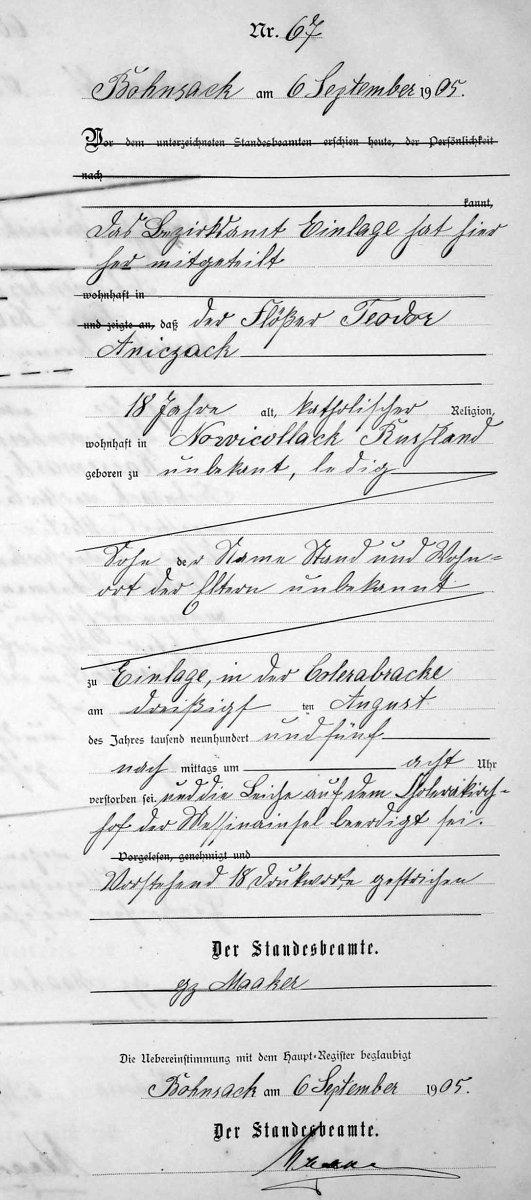 Nr. 67
Bohnsack am 6 September 1905.
Vor dem unterzeichneten Standesbeamten erschien heute, der Persönlichkeit
nach
kannt,
Das Bezirksamt Einlage hat hier
her mitgeteilt
wohnhaft in
und zeigte an, daß der Flößer Teodor
Aniczack
18 Jahre alt, katholischer Religion,
wohnhaft in Nowicollack Russland
geboren zu unbekant, ledig
Sohn der Name Stand und Wohn=
ort der Eltern unbekannt
zu Einlage, in der Colerabracke
am dreißigs ten August
des Jahres tausend neunhundert und fünf
nach mittags um acht Uhr
verstorben sei und die Leiche auf dem Cholerakirch=
hof der Messinainsel beerdigt sei.
Vorgelesen, genehmigt und
Vorstehend 18 Drukworte gestrichen
Der Standesbeamte.
gz Maaker
Die Uebereinstimmung mit dem Haupt-Register beglaubigt
Bohnsack am 6 September 1905.
Der Standesbeamte.